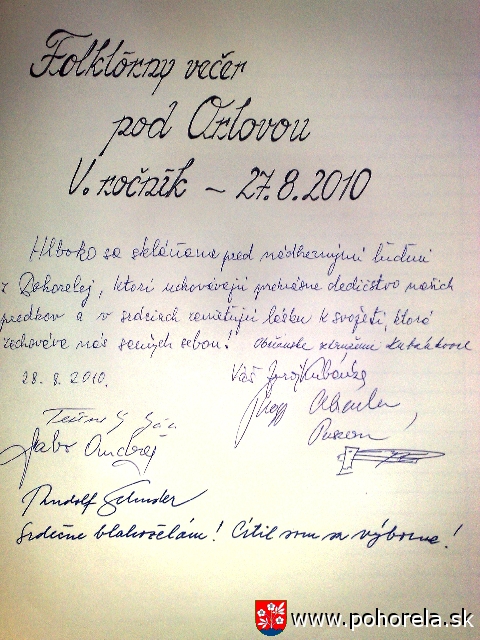 Folklórny večer
pod Orlovou
V. ročník – 27.8.2010
Hlboko sa skláňame pred nádhernými ľuďmi
z Pohorelej, ktorí uchovávajú prekrásne dedičstvo našich
predkov a v srdciach zveľaďujú lásku k svojeti, ktorá
zachováva nás samých sebou! Občianske združenie Kubánkovo
28. 8. 2010. Váš Juraj Kubánka
Jabo Ondrej
Rudolf Schuster
Srdečne blahoželám! Cítil som sa výborne!
www.pohorela.sk